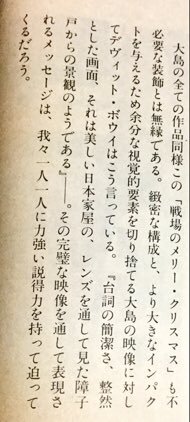 大島の全ての作品同様この『戦場のメリー・クリスマス』も不
必要な装飾とは無縁である。緻密な構成と、より大きなインパク
トを与えるため余分な視覚的要素を切り捨てる大島の映像に対し
てデヴィット・ボウイはこう言っている。『台詞の簡潔さ、整然
とした画面、それは美しい日本家屋の、レンズを通して見た障子
戸からの景観のようである』――。その完璧な映像を通して表現さ
れるメッセージは、我々一人一人に力強い説得力を持って迫って
くるだろう。